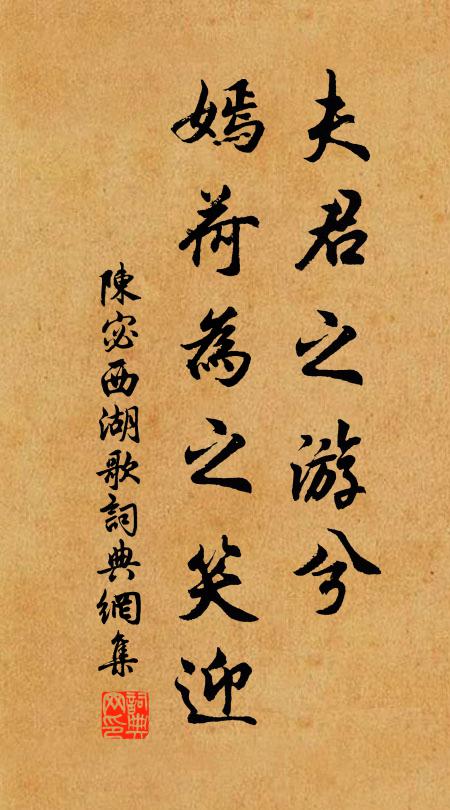 夫君之游兮
嫣荷為之笑迎
陳宓西湖歌詞典網集
詞典網印